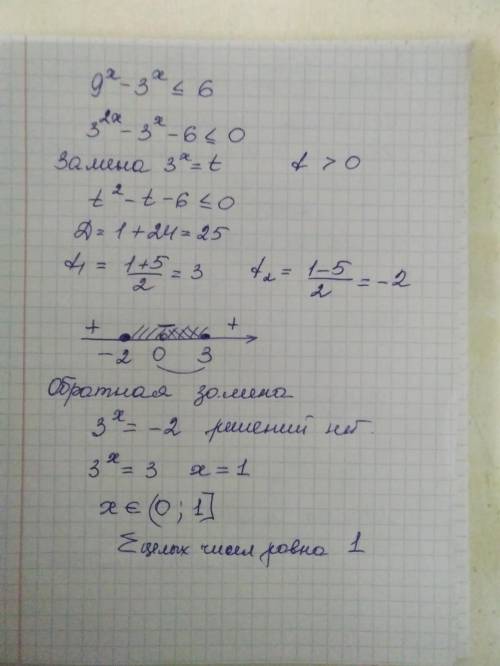 9^x - 3^x ≤ 6
3^{2x} - 3^x - 6 ≤ 0
Замена 3^x = t t > 0
t^2 - t - 6 ≤ 0
D = 1 + 24 = 25
t_1 = (1+5)/2 = 3 t_2 = (1-5)/2 = -2
+ - +
-2 0 3
Обратная замена
3^x = -2 решений нет.
3^x = 3 x = 1
x ∈ (0; 1]
Σ целых чисел равна 1